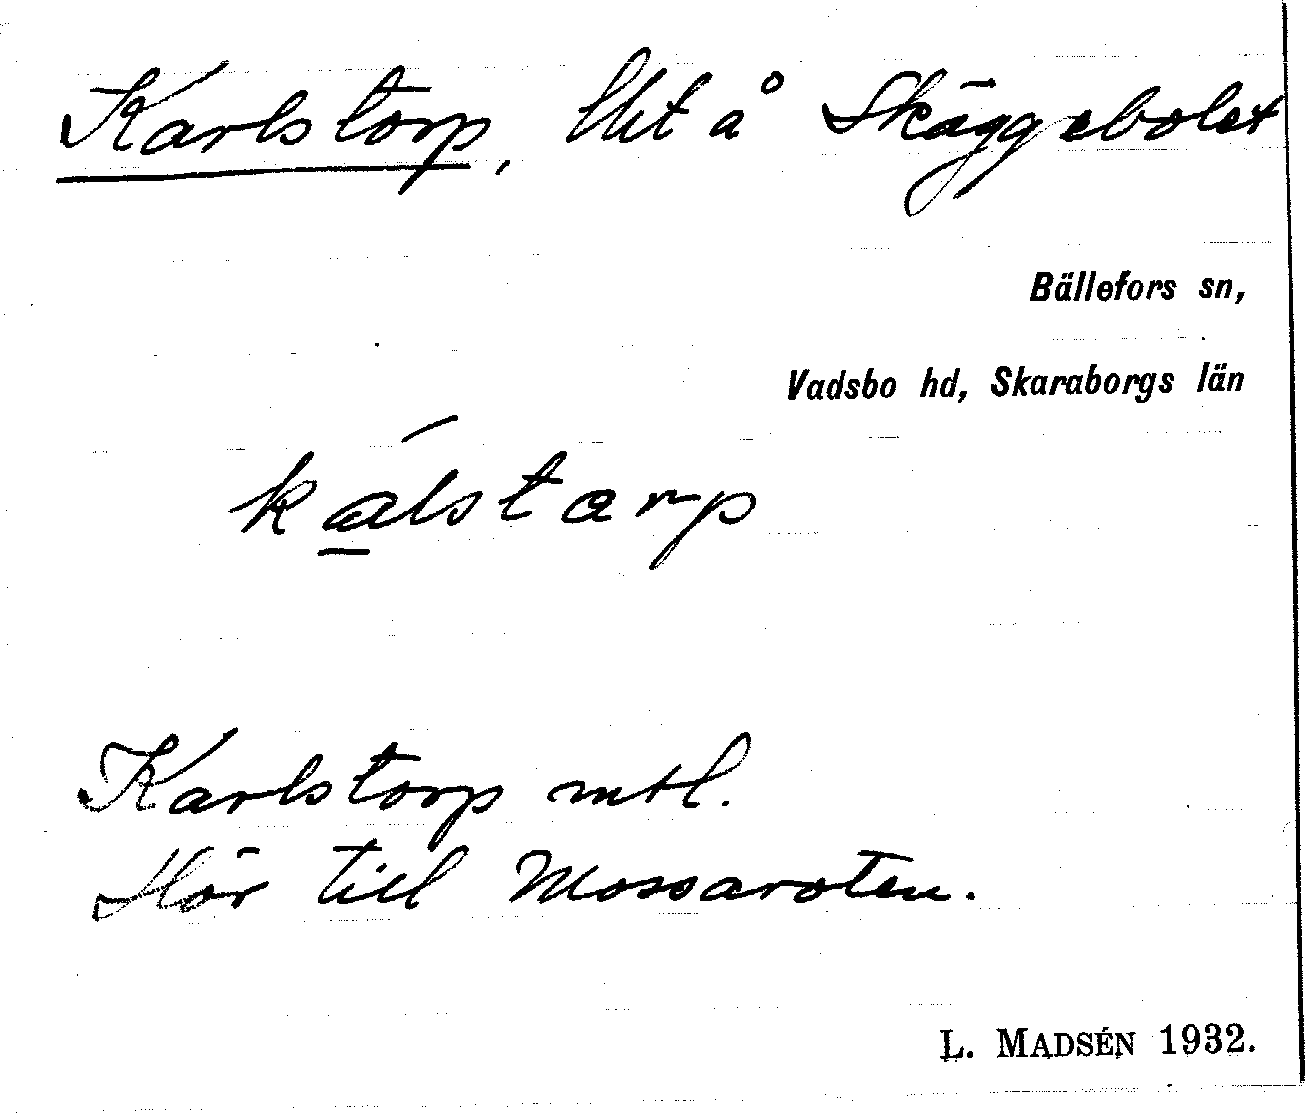 Karlstorp, lht å Skäggebolet
Bällefors sn,
Vadsbo hd, Skaraborgs län
kálstarp
Karlstorp mtl.
Hör till Mossaroten.
L. MADSÉN 1932.